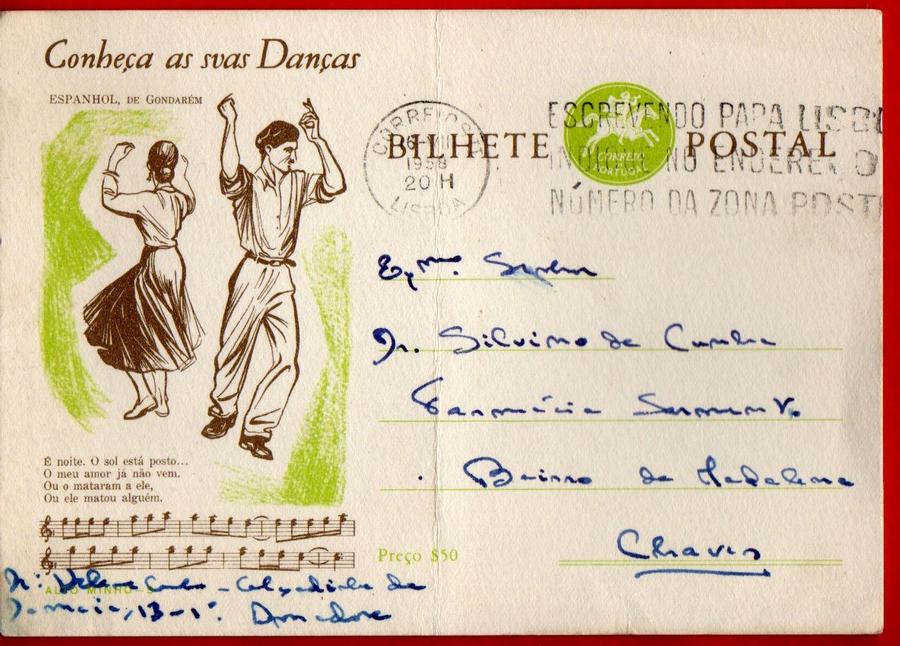 Conheça as suas Danças
ESPANHOL, DE GONDARÉM
CORREIOS
1958
20 H
LISBOA
BILHETE POSTAL
CORREIO
PORTUGAL
ESCREVENDO PARA LISBO
INDIQUE NO ENDEREÇO O
NÚMERO DA ZONA POSTA
Exmo. Senhor
Dr. Silvino da Cunha
Farmácia
Bairro da Madalena
Chaves
É noite. O sol está posto...
O meu amor já não vem.
Ou o mataram a ele,
Ou ele matou alguém.
Preço $50
ALTO MINHO
13-1º.